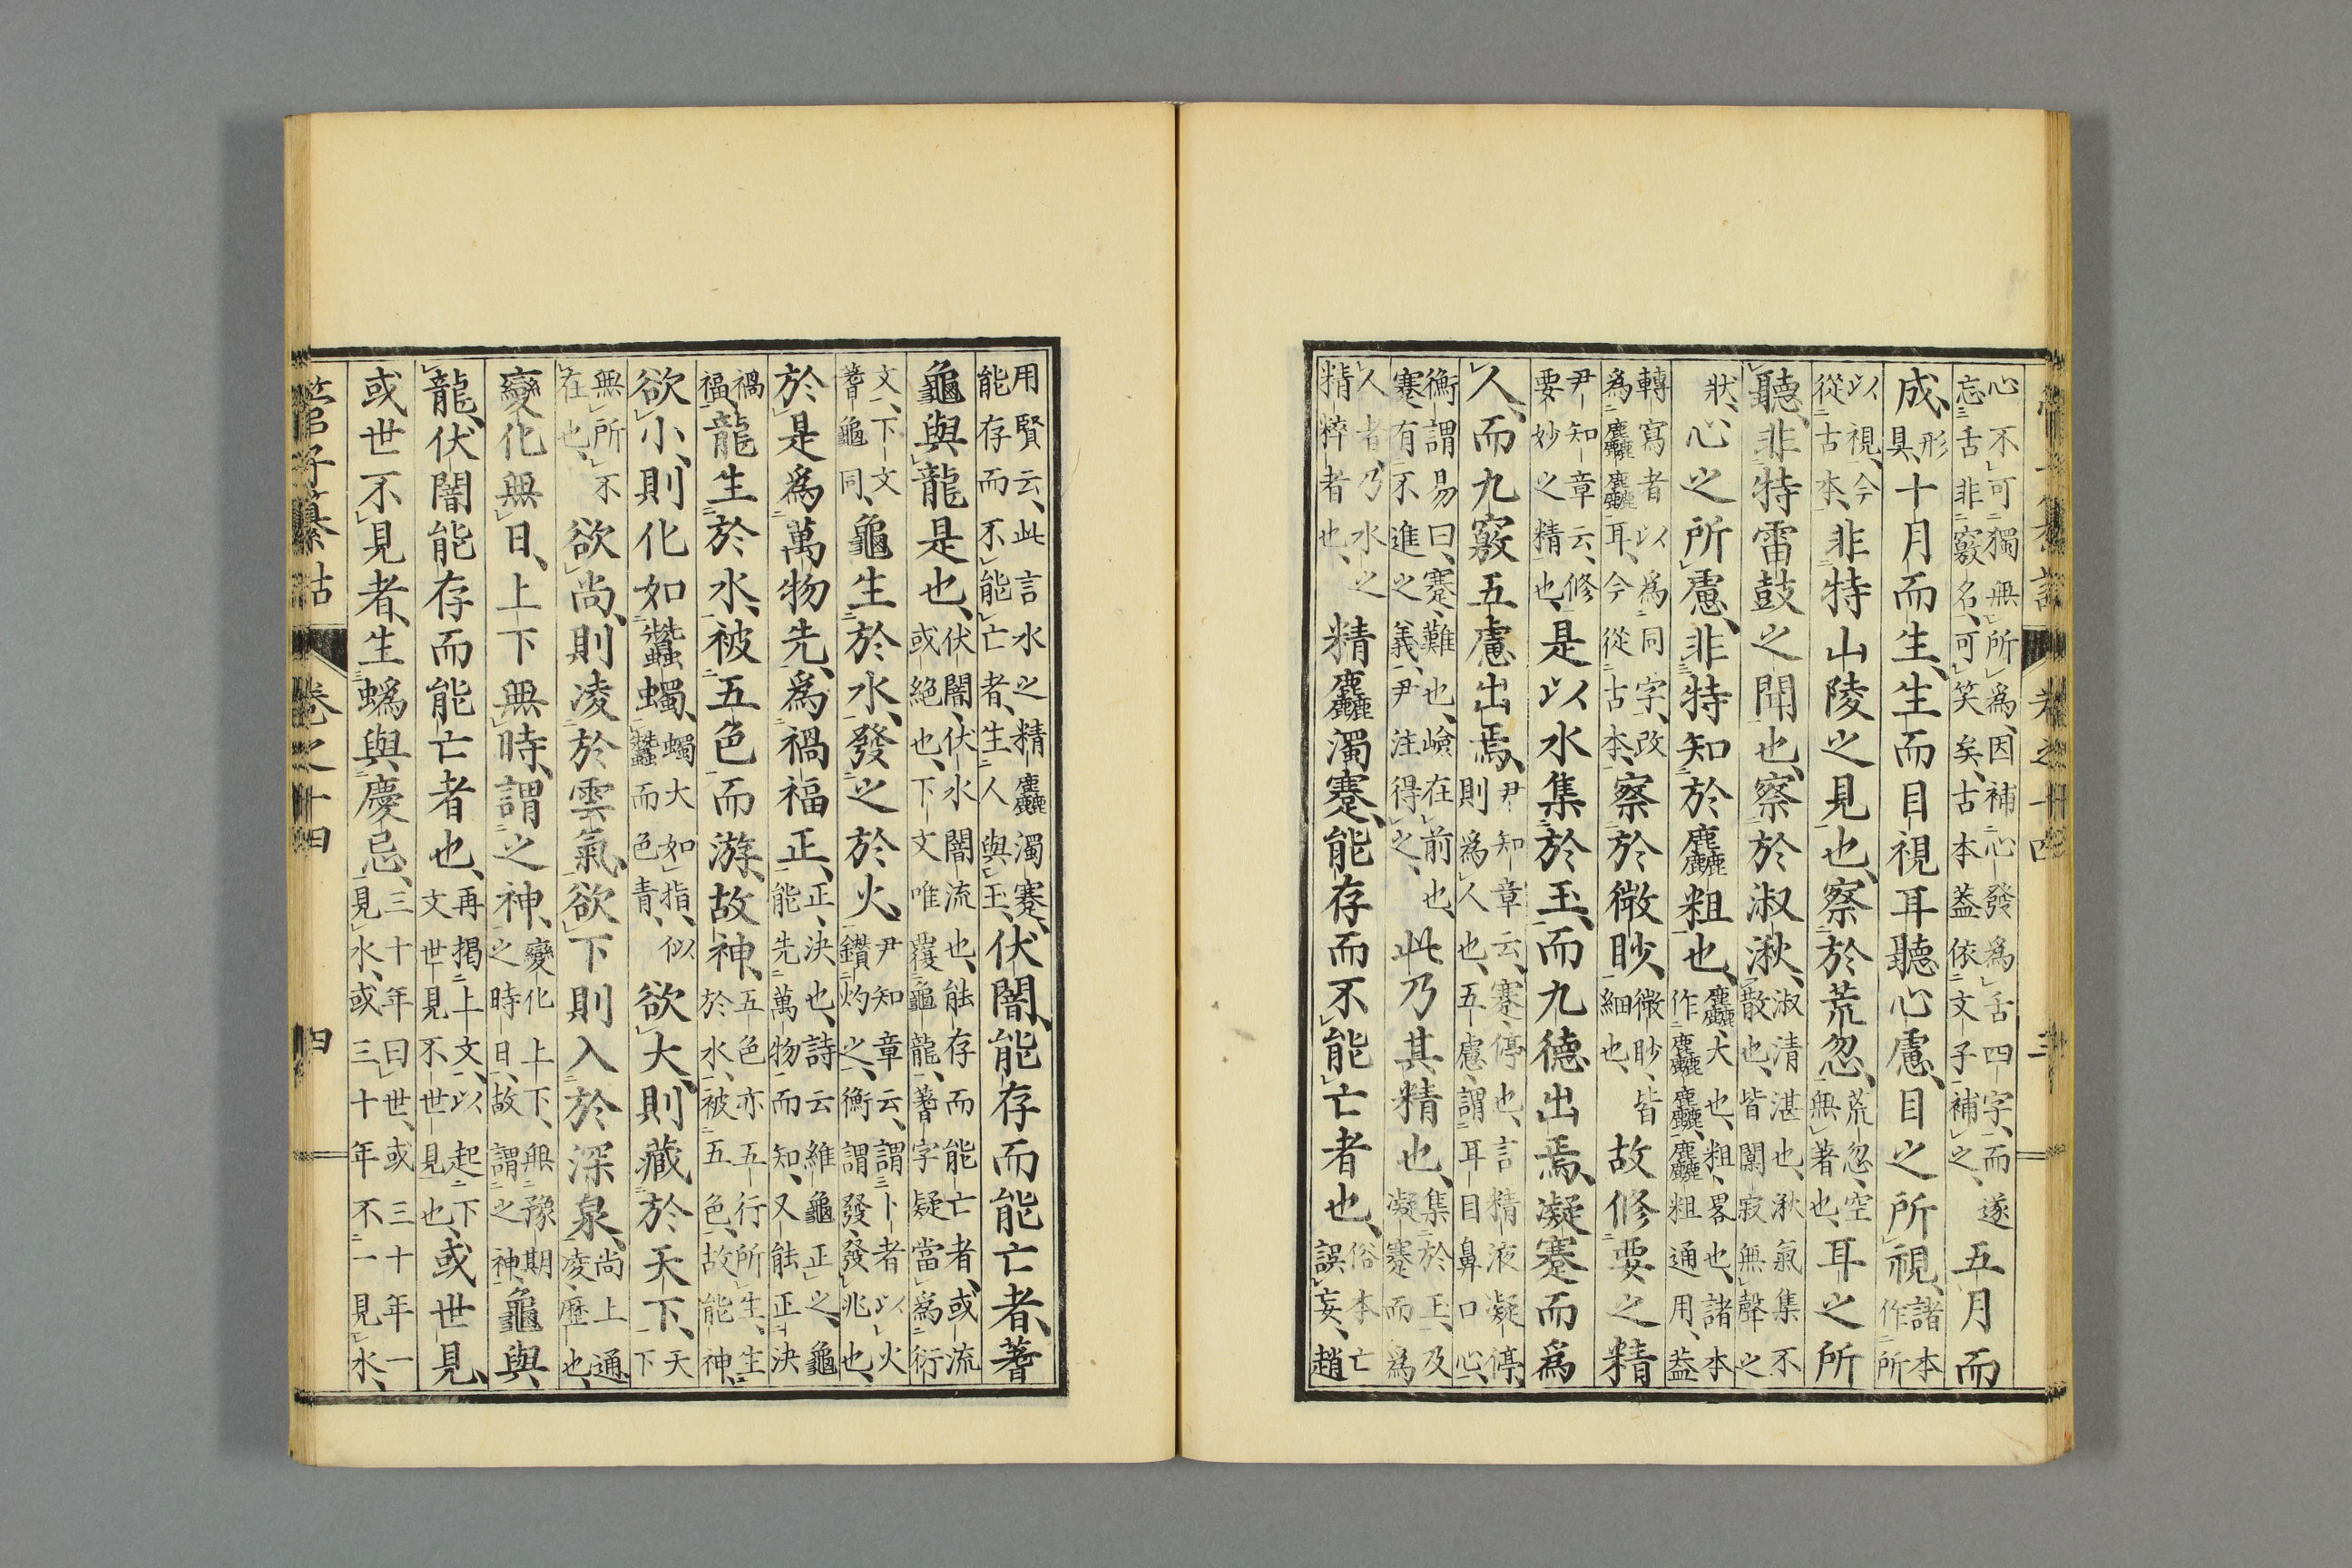 心不可獨無所爲因補心發爲舌四字而遂
忘舌非竅名可笑矣古本蓋依文子補之
五月而
成形具十月而生生而目視耳聽心慮目之所視諸本作所
以視今從古本非特山陵之見也察於荒忽荒忽空無著也耳之所
聽非特雷鼓之聞也察於淑湫淑清湛也湫氣集不散也皆闃寂無聲之
狀心之所慮非特知於麤粗也麤大也粗畧也諸本作麤麤麤粗通用蓋
轉寫者以爲同字改爲麤麤耳今從古本察於微眇微眇皆細也故修要之精
尹知章云修要妙之精也是以水集於玉而九德出焉凝蹇而爲
人而九竅五慮出焉尹知章云蹇停也言精液凝停則爲人也五慮謂耳目鼻口心
衡謂易曰蹇難也嶮在前也蹇有不進之義尹注得之此乃其精也集於玉及凝蹇而爲
人者乃水之精粹者也精麤濁蹇能存而不能亡者也俗本亡誤妄趙
用賢云此言水之精麤濁蹇能存而不能亡者生人與玉伏闇能存而能亡者蓍
龜與龍是也伏闇伏水闇流也能存而能亡者或流或絕也下文唯覆龜龍蓍字疑當爲衍
文下文蓍龜同龜生於水發之於火尹知章云謂卜者以火鑽灼之衡謂發發兆也
於是爲萬物先爲禍福正正決也詩云維龜正之龜能先萬物而知又能正決
禍福龍生於水被五色而游故神五色亦五行所生生於水被五色故能神
欲小則化如蠶蠋蠋大如指似蠶而色青欲大則藏於天下天下
無所不在也欲尚則凌於雲氣欲下則入於深泉尚上通凌歷也
變化無日上下無時謂之神變化上下無豫期之時日故謂之神龜與
龍伏闇能存而能亡者也再揭上文以起下文世見不世見也或世見
或世不見者生蟡與慶忌三十年曰世或三十年一見水或三十年不一見水
管子纂詁 卷之十四 四